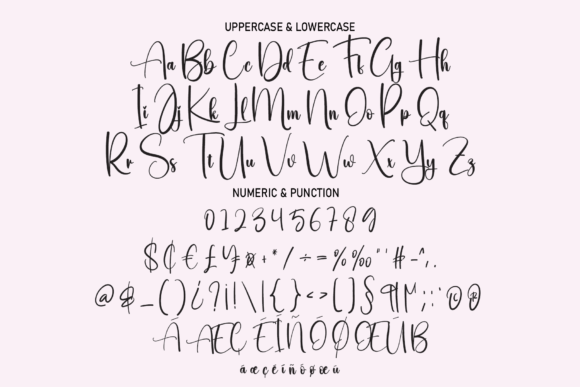 UPPERCASE & LOWERCASE
Aa Bb Cc Dd Ee Ff Gg Hh
Ii Jj Kk Ll Mm Nn Oo Pp Qq
Rr Ss Tt Uu Vv Ww Xx Yy Zz
NUMERIC & PUNCTION
0 1 2 3 4 5 6 7 8 9
$ ¢ € £ ¥ ¤ + * / ÷ = % ‰ " ' # - ^ , .
@ & _ ( ) ¿ ? ¡ ! \ | { } < > [ ] § ¶ M ; : © ®
Á Æ Ç É Í Ñ Ó Ø Œ Ú ß
á æ ç é í ñ ó ø œ ú